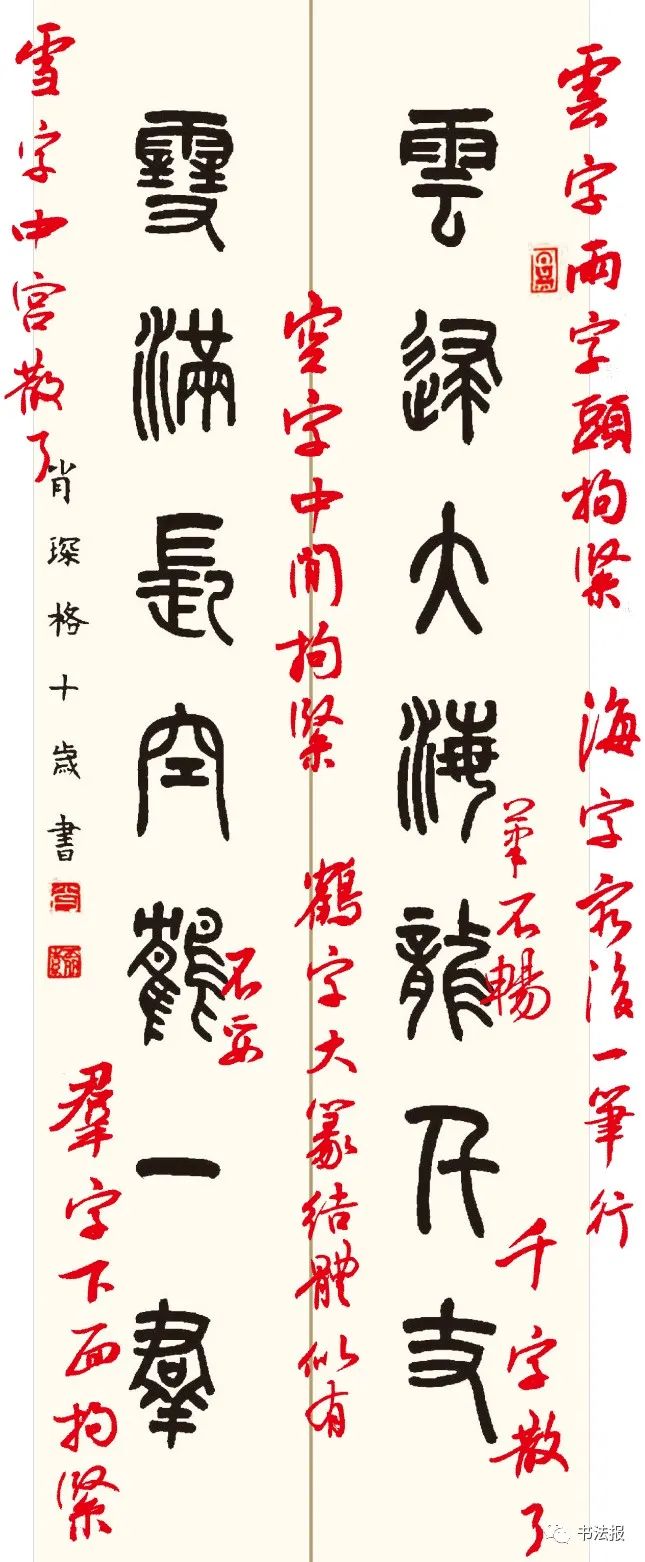 雲歸大海龍千丈
雪滿長空鶴一羣
肖琛格十歲書
雲字雨字頭拘緊
海字最後一筆行
筆不暢
千字散了
空字中間拘緊
鶴字大篆結體似有
不妥
雪字中宮散了
羣字下面拘緊
书法报